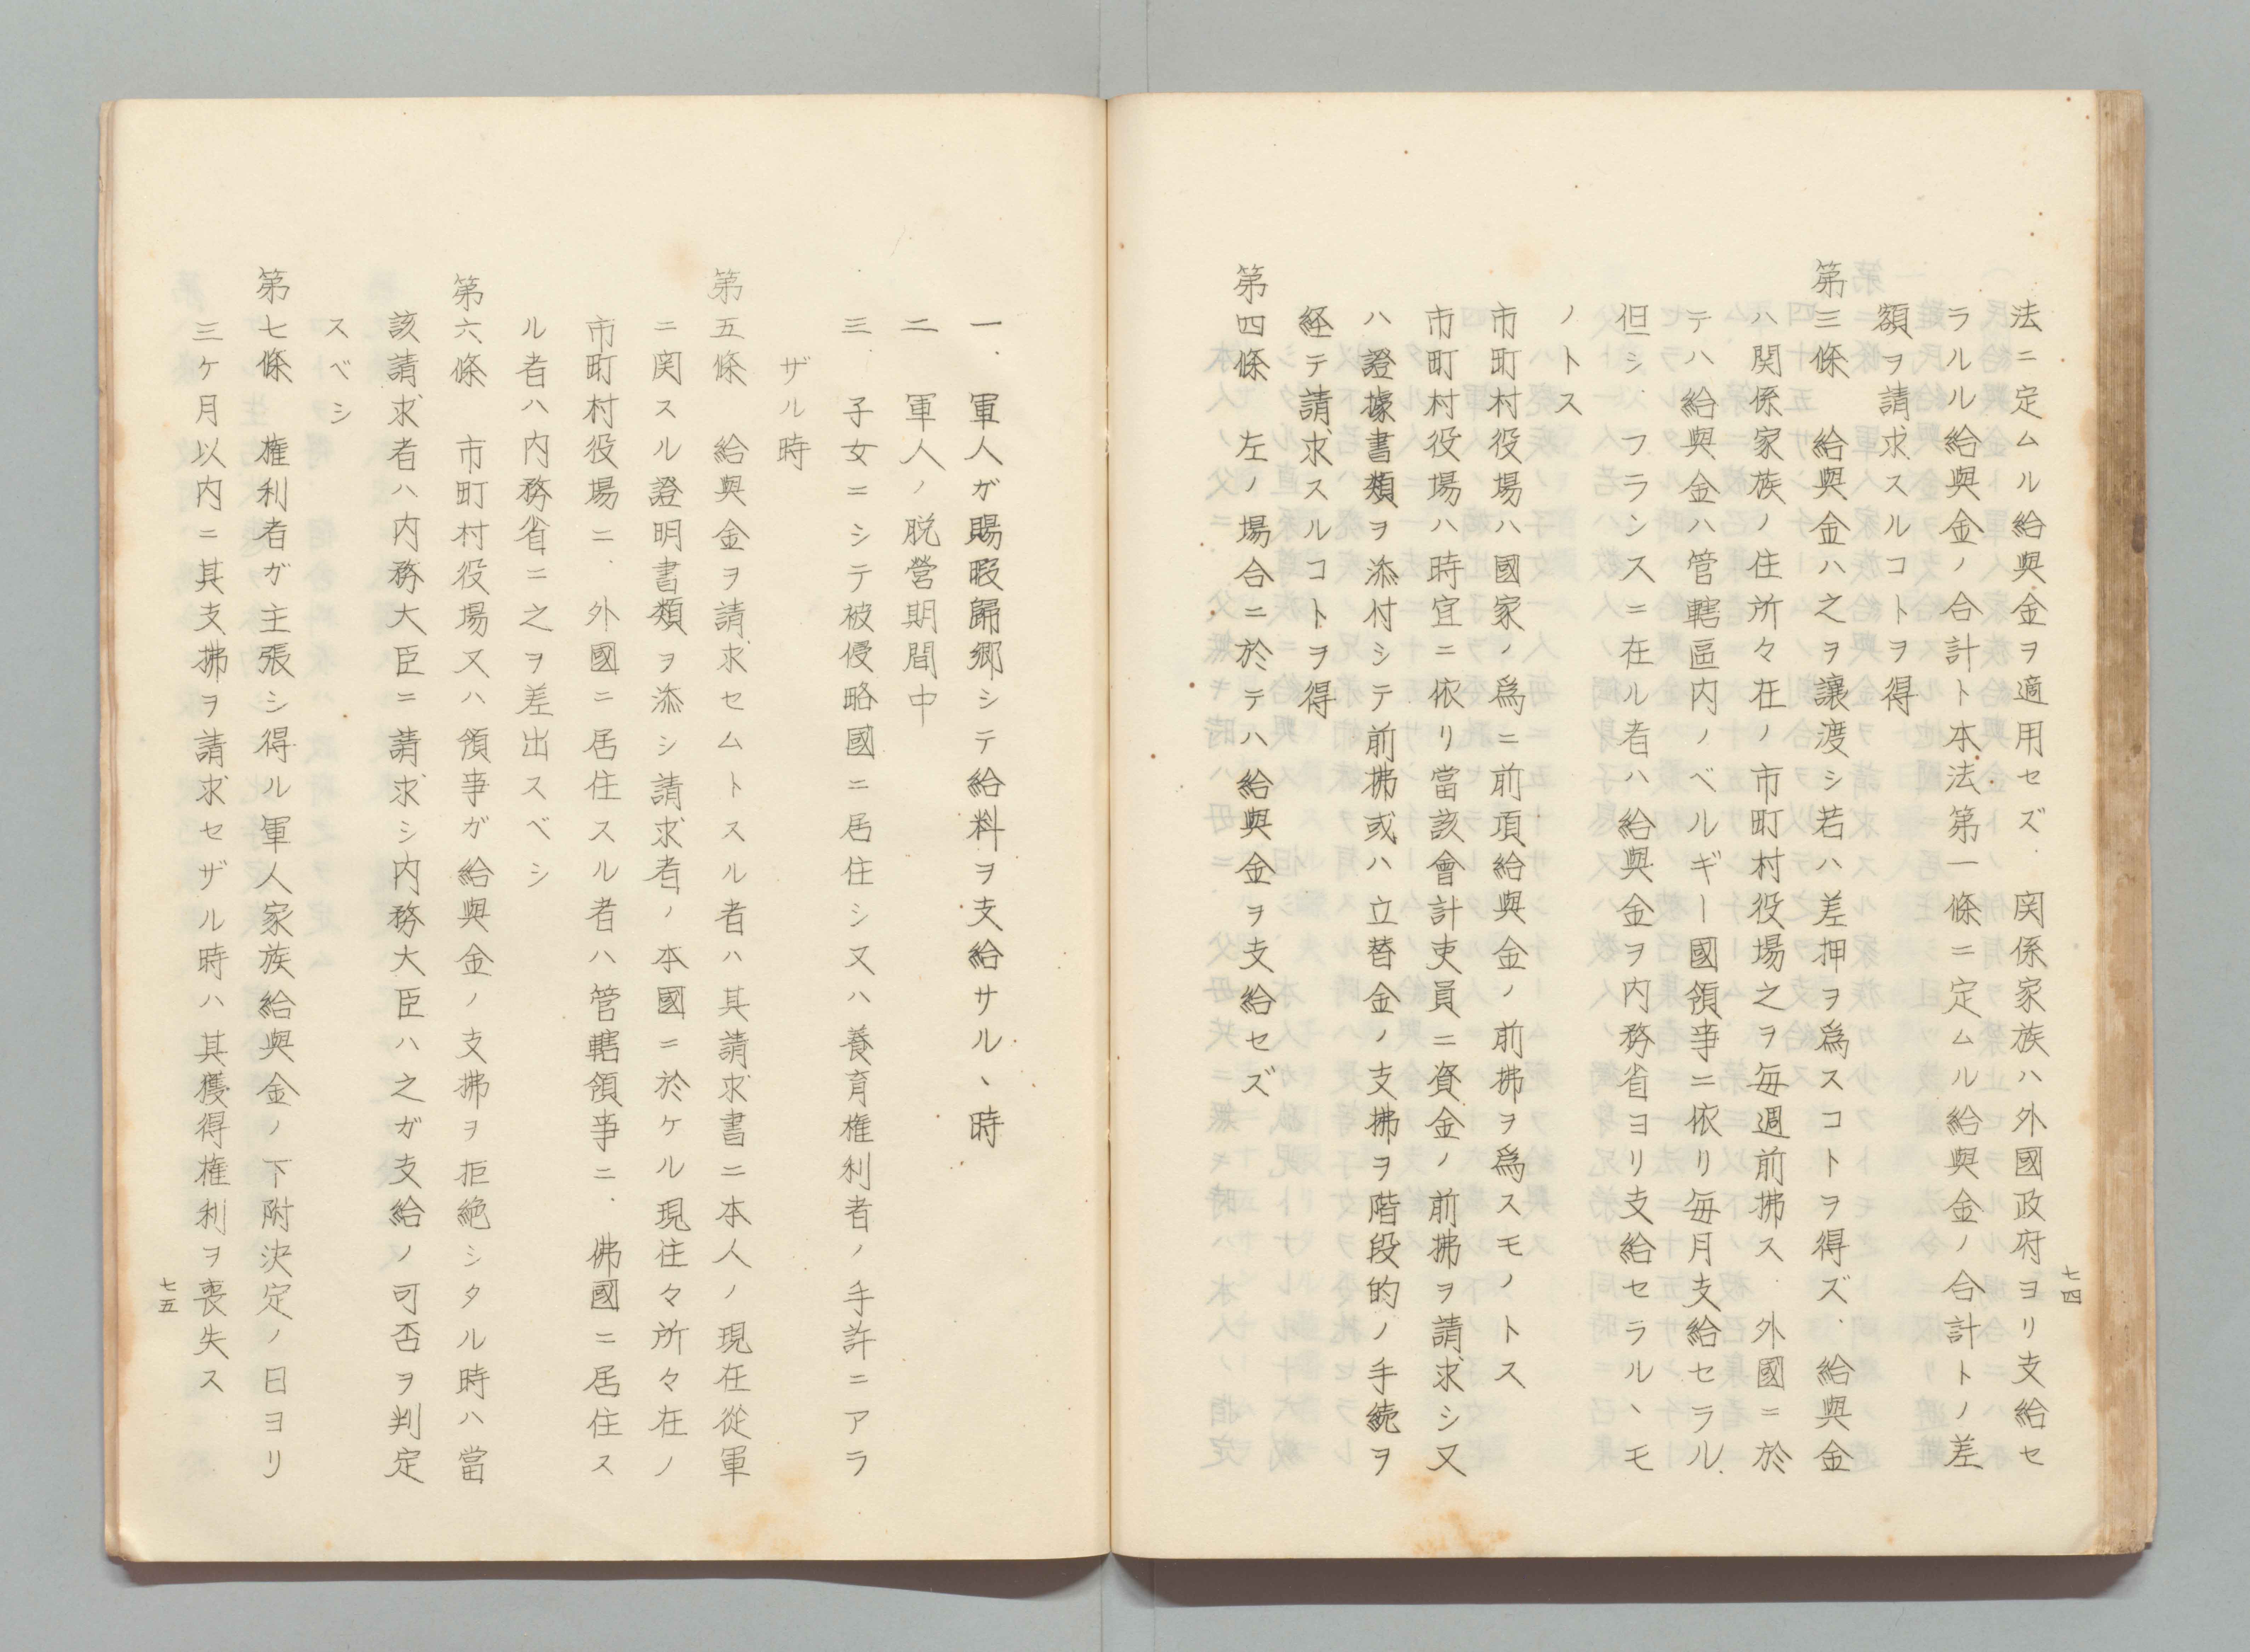 法ニ定ムル給與金ヲ適用セズ．関係家族ハ外國政府ヨリ支給セ
ラルル給與金ノ合計ト本法第一條ニ定ムル給與金ノ合計トノ差
額ヲ請求スルコトヲ得
第三條　給與金ハ之ヲ讓渡シ若ハ差押ヲ爲スコトヲ得ズ．給與金
ハ関係家族ノ住所々在ノ市町村役場之ヲ毎週前拂ス．外國ニ於
テハ給與金ハ管轄區内ノベルギー國領事ニ依リ毎月支給セラル．
但シ．フランスニ在ル者ハ給與金ヲ内務省ヨリ支給セラルヽモ
ノトス
市町村役場ハ國家ノ爲ニ前項給與金ノ前拂ヲ爲スモノトス
市町村役場ハ時宜ニ依リ當該會計吏員ニ資金ノ前拂ヲ請求シ又
ハ證據書類ヲ添付シテ前拂或ハ立替金ノ支拂ヲ階段的ノ手続ヲ
経テ請求スルコトヲ得
第四條　左ノ場合ニ於テハ給與金ヲ支給セズ
七四
一．軍人ガ賜暇歸郷シテ給料ヲ支給サルヽ時
二　軍人ノ脱營期間中
三．子女ニシテ被侵略國ニ居住シ又ハ養育権利者ノ手許ニアラ
ザル時
第五條　給與金ヲ請求セムトスル者ハ其請求書ニ本人ノ現在從軍
ニ関スル證明書類ヲ添シ請求者ノ本國ニ於ケル現住々所々在ノ
市町村役場ニ．外國ニ居住スル者ハ管轄領事ニ．佛國ニ居住ス
ル者ハ内務省ニ之ヲ差出スベシ
第六條　市町村役場又ハ領事ガ給與金ノ支拂ヲ拒絶シタル時ハ當
該請求者ハ内務大臣ニ請求シ内務大臣ハ之ガ支給ノ可否ヲ判定
スベシ
第七條　権利者ガ主張シ得ル軍人家族給與金ノ下附決定ノ日ヨリ
三ケ月以内ニ其支拂ヲ請求セザル時ハ其獲得権利ヲ喪失ス
七五